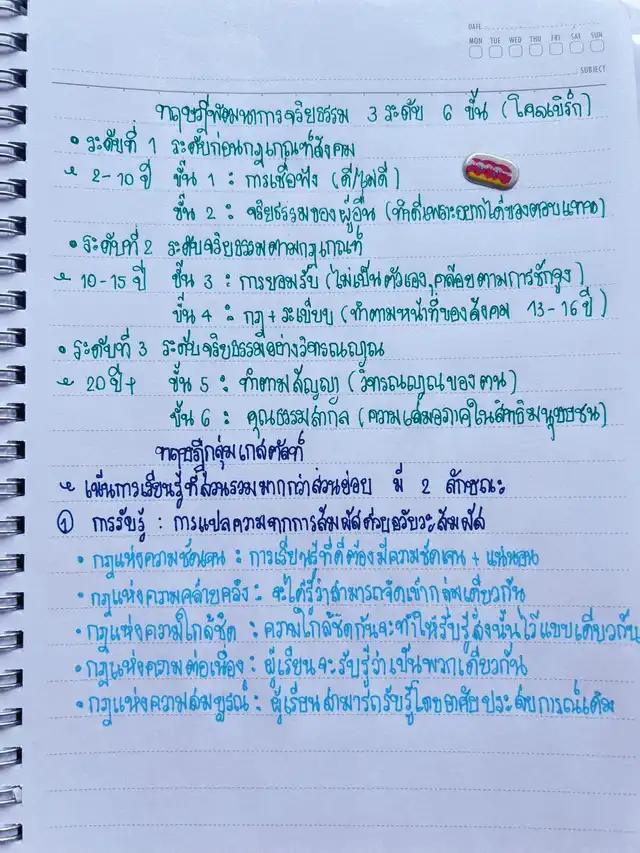 DATE
MON TUE WED THU FRI SAT SUN
SUBJECT
ทฤษฎีพัฒนาการจริยธรรม 3 ระดับ 6 ขั้น (โคลเบิร์ก)
• ระดับที่ 1 ระดับก่อนกฎเกณฑ์สังคม
2-10 ปี ขั้น 1 : การเชื่อฟัง (ดี/ไม่ดี)
ขั้น 2 : จริยธรรมของผู้อื่น (ทำดีเพราะอยากได้ของตอบแทน)
• ระดับที่ 2 ระดับจริยธรรมตามกฎเกณฑ์
10-15 ปี ขั้น 3 : การยอมรับ (ไม่เป็นตัวเอง, คล้อยตามการชักจูง)
ขั้น 4 : กฎ + ระเบียบ (ทำตามหน้าที่ของสังคม 13-16 ปี)
• ระดับที่ 3 ระดับจริยธรรมอย่างวิจารณญาณ
20 ปี+ ขั้น 5 : ทำตามสัญญา (วิจารณญาณของตน)
ขั้น 6 : คุณธรรมสากล (ความเสมอภาคในสิทธิมนุษยชน)
ทฤษฎีกลุ่มเกสตัลท์
เน้นการเรียนรู้ที่ส่วนรวมมากกว่าส่วนย่อย มี 2 ลักษณะ
① การรับรู้ : การแปลความจากการสัมผัสด้วยอวัยวะสัมผัส
• กฎแห่งความชัดเจน : การเรียนรู้ที่ดีต้องมีความชัดเจน + แน่นอน
• กฎแห่งความคล้ายคลึง : จะได้รู้ว่าสามารถจัดเข้ากลุ่มเดียวกัน
• กฎแห่งความใกล้ชิด : ความใกล้ชิดกันจะทำให้รับรู้สิ่งนั้นไว้แบบเดียวกัน
• กฎแห่งความต่อเนื่อง : ผู้เรียนจะรับรู้ว่าเป็นพวกเดียวกัน
• กฎแห่งความสมบูรณ์ : ผู้เรียนสามารถรับรู้โดยอาศัยประสบการณ์เดิม